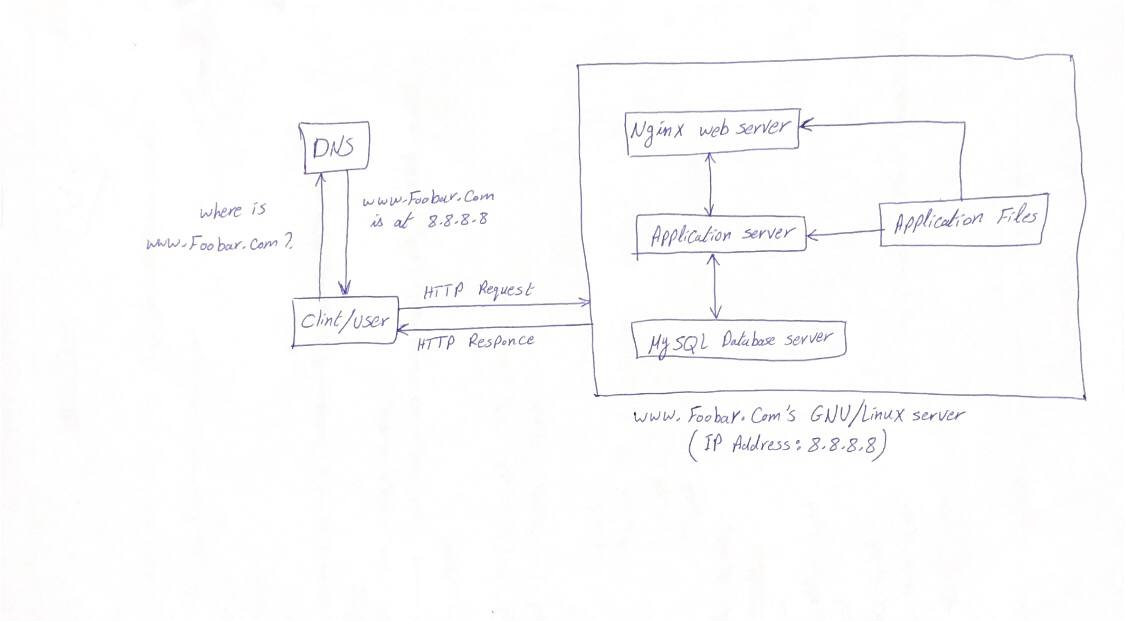 DNS
where is
www.Foobar.Com?
www.Foobar.Com
is at 8.8.8.8
Clint/User
HTTP Request
HTTP Responce
Nginx web server
Application server
Application Files
MySQL Database server
www.Foobar.Com's GNU/Linux server
(IP Address: 8.8.8.8)